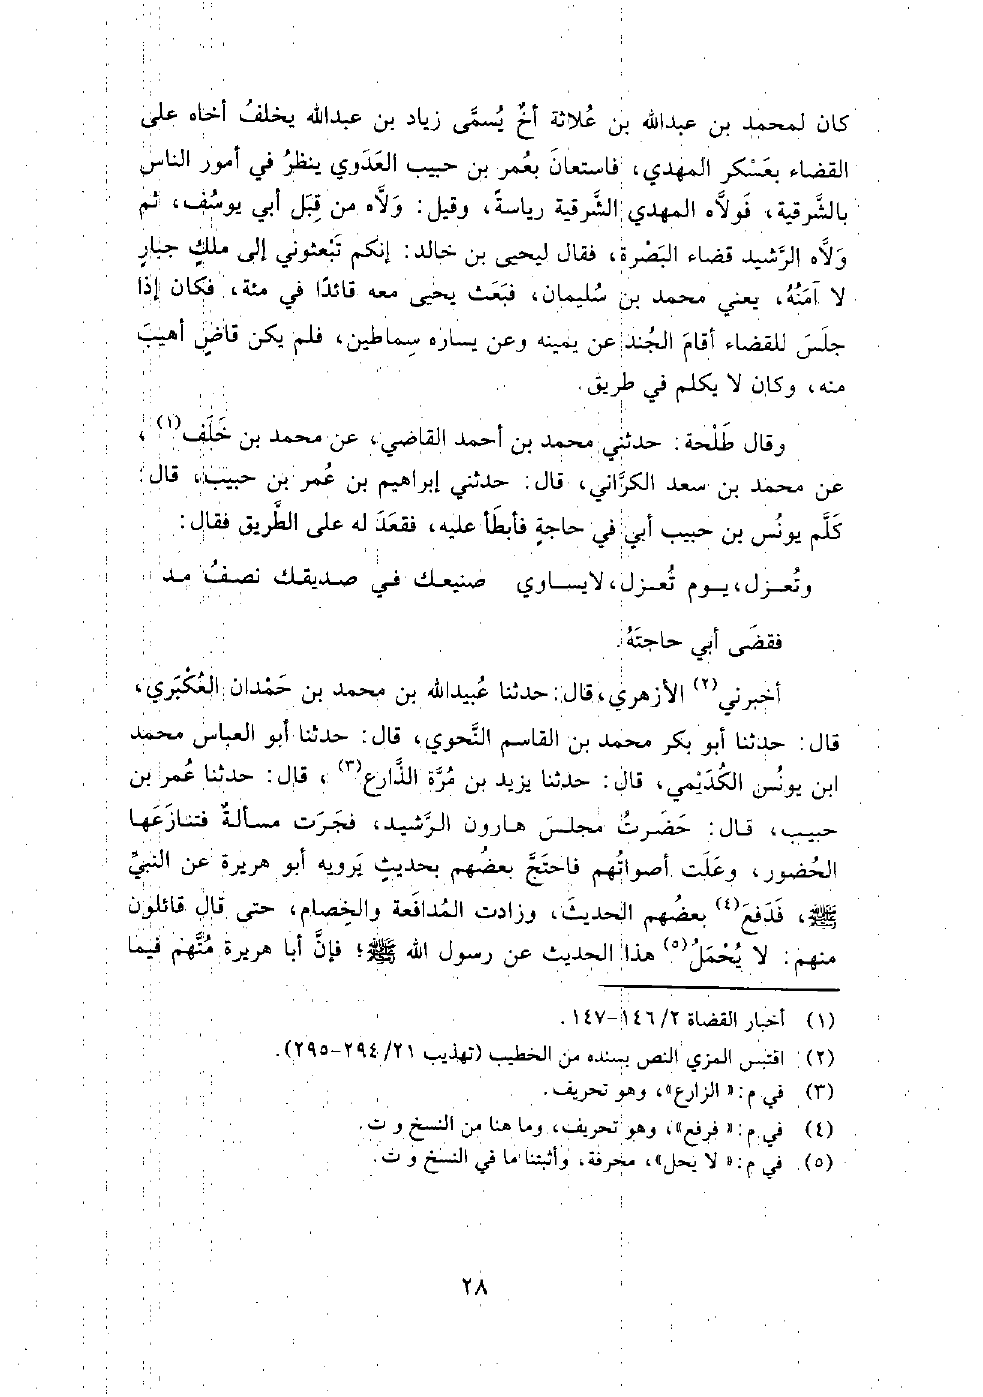 كان لمحمد بن عبدالله بن عُلاثة أخٌ يُسمَّى زياد بن عبدالله يخلفُ أخاه على
القضاء بعَسْكر المهدي، فاستعانَ بعُمر بن حبيب العَدَوي ينظرُ في أمور الناس
بالشَّرقية، فَولاَّه المهدي الشَّرقية رياسةً، وقيل: وَلاَّه من قِبَل أبي يوسُف، ثم
وَلاَّه الرَّشيد قضاء البَصْرة، فقال ليحيى بن خالد: إنكم تَبْعثوني إلى ملكٍ جبارٍ
لا آمَنُهُ، يعني محمد بن سُليمان، فبَعَث يحيى معه قائدًا في مئة، فكان إذا
جلَسَ للقضاء أقامَ الجُند عن يمينه وعن يساره سِماطين، فلم يكن قاضٍ أهيبَ
منه، وكان لا يكلم في طريق.
وقال طَلْحة: حدثني محمد بن أحمد القاضي، عن محمد بن خَلَف(١)،
عن محمد بن سعد الكرَّاني، قال: حدثني إبراهيم بن عُمر بن حبيب، قال:
كَلَّم يونُس بن حبيب أبي في حاجةٍ فأبطَأ عليه، فقعَدَ له على الطَّريق فقال:
وتُعـزل، يـوم تُعـزل، لايسـاوي صنيعـك فـي صديقـك نصفُ مـد
فقضَى أبي حاجتَهُ.
أخبرني(٢) الأزهري، قال: حدثنا عُبيدالله بن محمد بن حَمْدان العُكْبَري،
قال: حدثنا أبو بكر محمد بن القاسم النَّحوي، قال: حدثنا أبو العباس محمد
ابن يونُس الكُدَيْمي، قال: حدثنا يزيد بن مُرَّة الذَّارع(٣)، قال: حدثنا عُمر بن
حبيب، قال: حَضَرتُ مجلسَ هارون الرَّشيد، فجَرَت مسألةٌ فتنازَعَها
الحُضور، وعَلَت أصواتُهم فاحتَجَّ بعضُهم بحديثٍ يَرويه أبو هريرة عن النبيِّ
ﷺ، فَدَفعَ(٤) بعضُهم الحديثَ، وزادت المُدافَعة والخِصام، حتى قال قائلون
منهم: لا يُحْمَلُ(٥) هذا الحديث عن رسول الله ﷺ؛ فإنَّ أبا هريرة مُتَّهم فيما
(١) أخبار القضاة ٢/ ١٤٦-١٤٧.
(٢) اقتبس المزي النص بسنده من الخطيب (تهذيب ٢١/ ٢٩٤-٢٩٥).
(٣) في م: «الزارع»، وهو تحريف.
(٤) في م: «فرفع»، وهو تحريف، وما هنا من النسخ و ت.
(٥) في م: «لا يحل»، محرفة، وأثبتنا ما في النسخ و ت.
٢٨